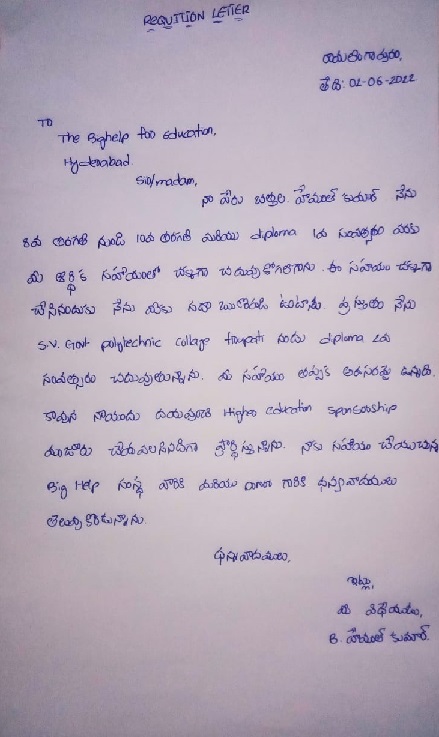 REQUITION LETTER
రాయలంగాపురం,
తేది: 02-06-2022
TO
The Bighelp for Education,
Hyderabad.
Sir/madam,
నా పేరు బత్తుల హేమంత్ కుమార్ నేను
8వ తరగతి నుండి 10వ తరగతి మరియు diploma 1వ సంవత్సరం వరకు
మీ ఆర్థిక సహాయంలో చక్కగా చదువుకోగలిగాను. ఈ సహాయం చక్కగా
చేసినందుకు నేను మీకు సదా ఋణపడి ఉంటాను. ప్రస్తుతం నేను
S.V. Govt polytechnic collage tirupati నందు diploma 2వ
సంవత్సరం చదువుతున్నాను. మీ సహాయం ఎప్పుడి అవసరమై ఉన్నది.
కావున నాయందు దయవుంచి Higher education sponsorship
మంజూరు చేయవలసినదిగా ప్రార్థిస్తున్నాను. నాకు సహాయం చేయుచున్న
Big Help సంస్థ వారికి మరియు donor గారికి ధన్యవాదములు
తెలుపుకొంటున్నాను.
ధన్యవాదములు,
ఇట్లు,
మీ విధేయుడు,
B. హేమంత్ కుమార్.